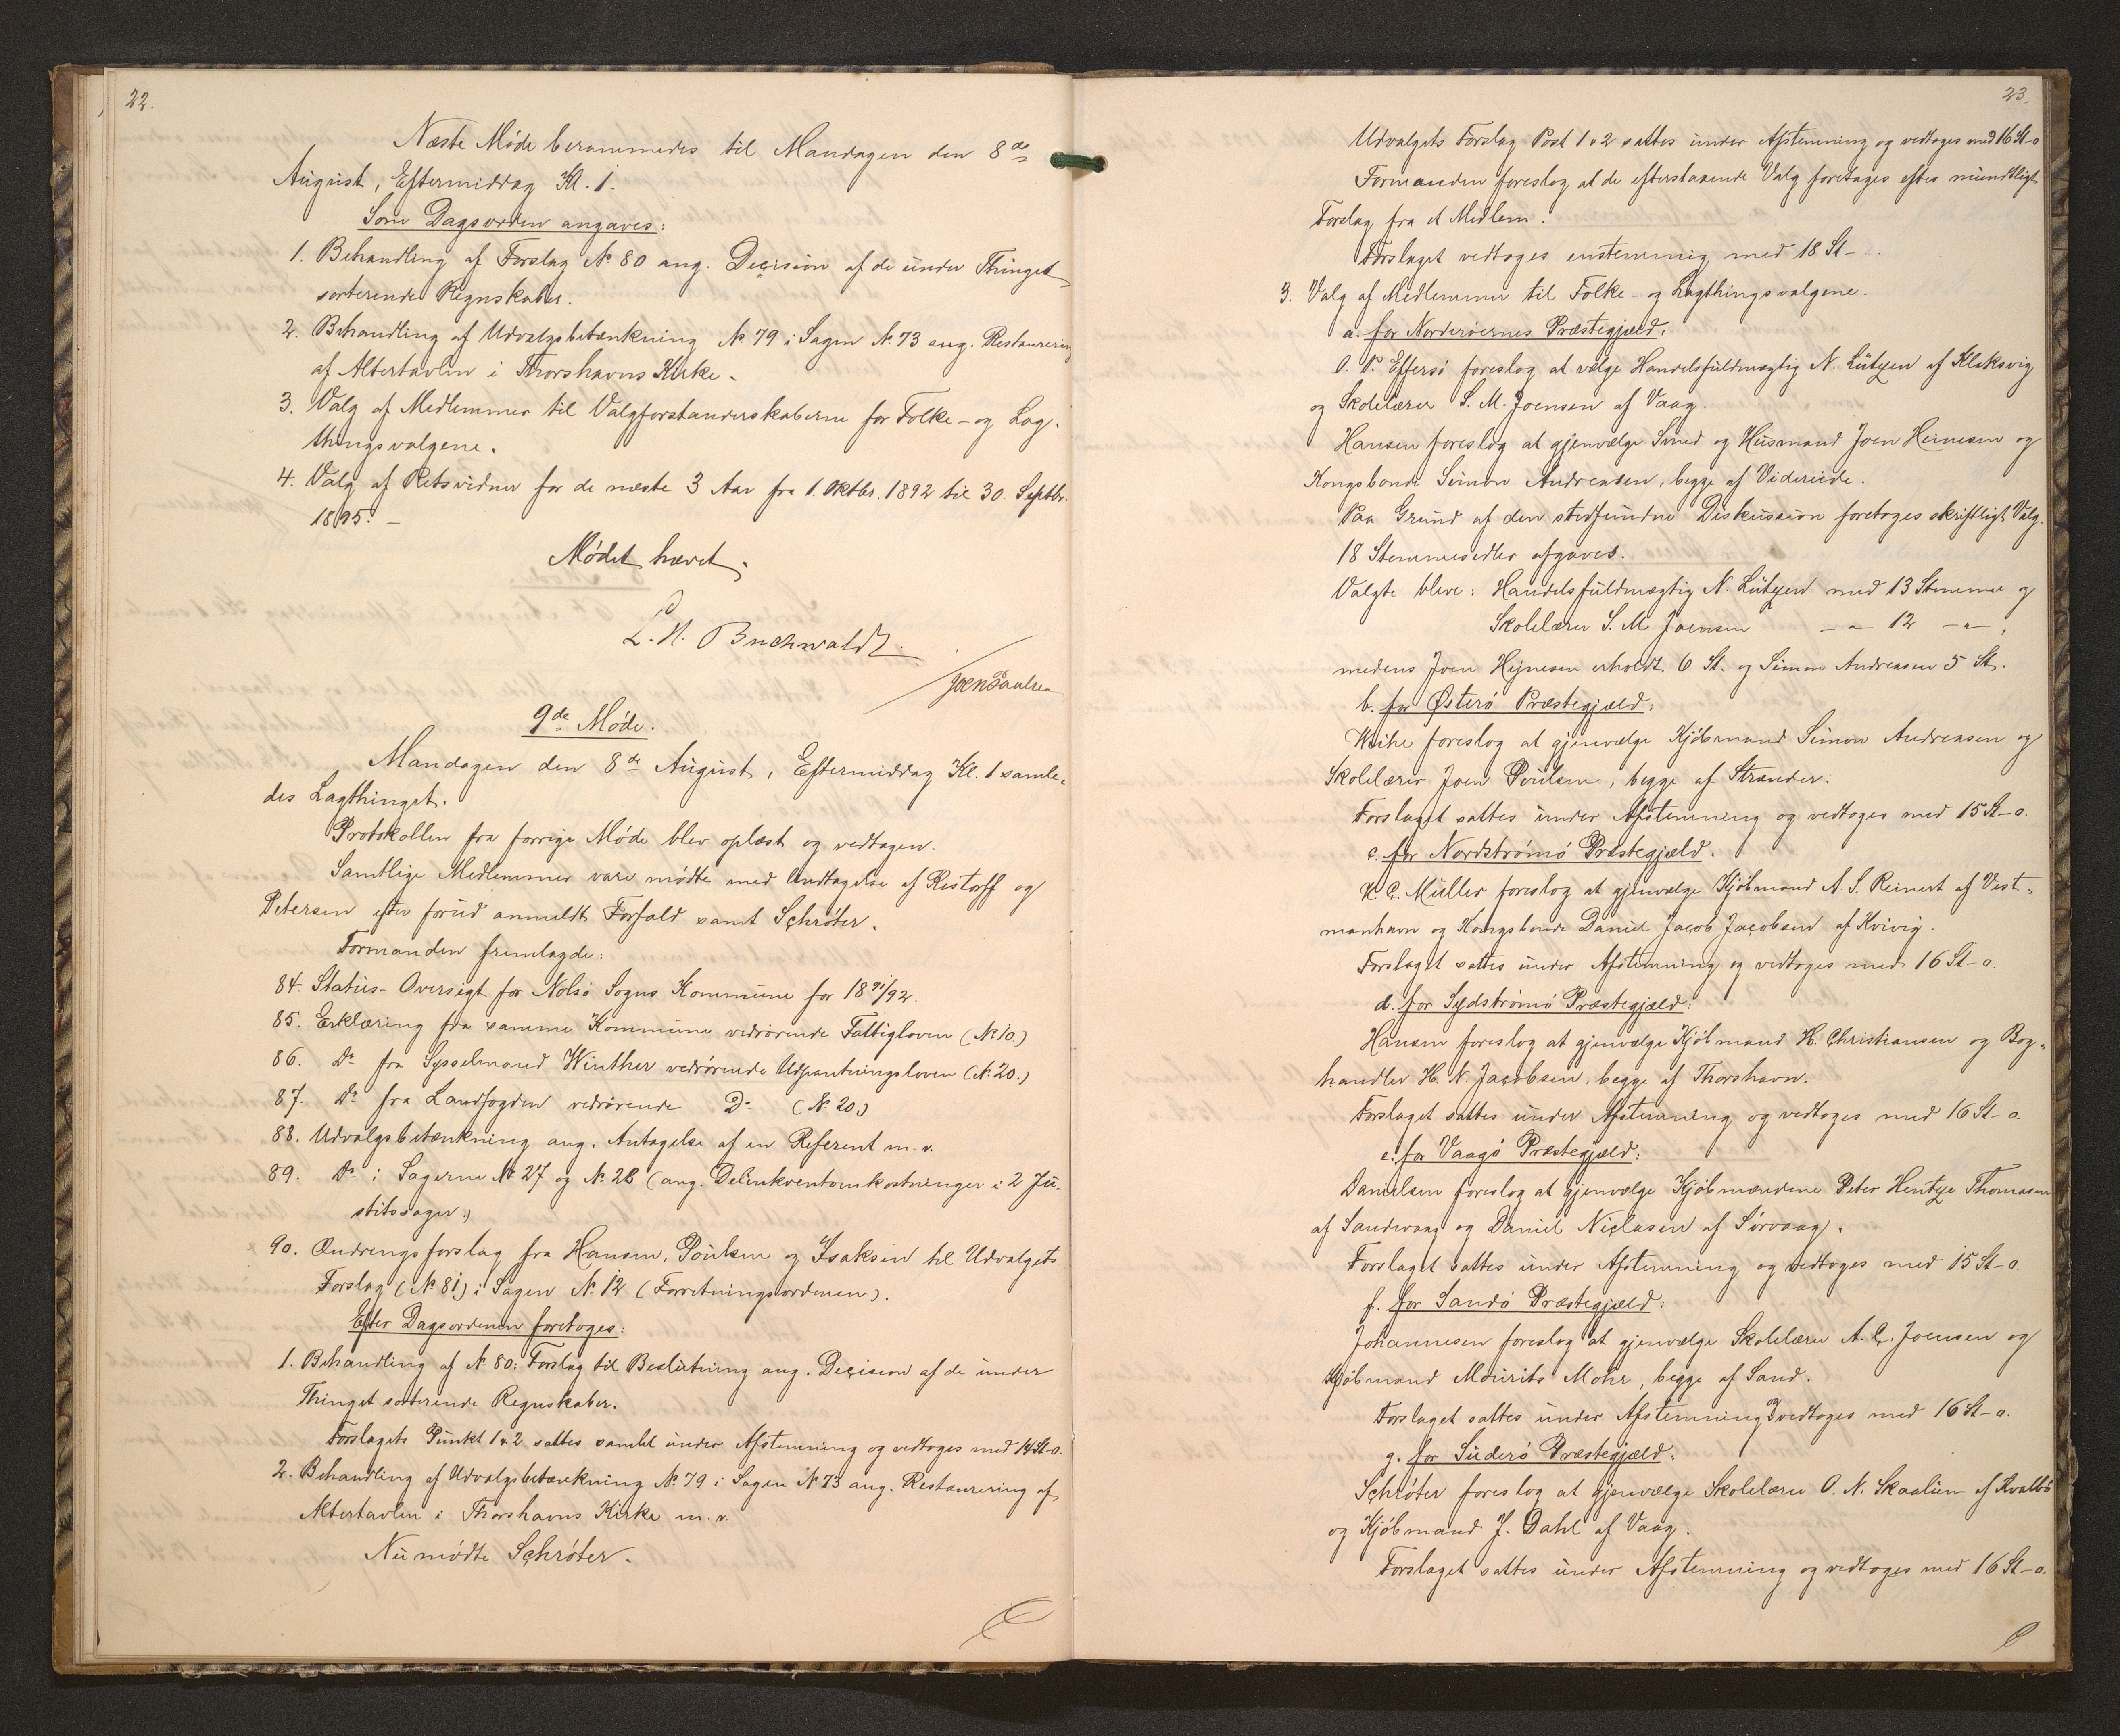 22.
Næste Møde berammedes til Mandagen den 8de
August, Eftermiddag Kl. 1.
Som Dagsorden angaves:
1. Behandling af Forslag No 80 ang. Decision af de under Thinget
sorterende Regnskaber.
2. Behandling af Udvalgsbetænkning No 79 i Sagen No 73 ang. Restaurering
af Altertavlen i Thorshavns Kirke.
3. Valg af Medlemmer til Valgforstanderskaberne for Folke- og Lag-
thingsvalgene.
4. Valg af Retsvidner for de næste 3 Aar fra 1. Oktbr. 1892 til 30. Septbr.
1895. –
Mødet hævet.
L. H. Buchwaldt.
Joen Paulsen
9de Møde.
Mandagen den 8de August, Eftermiddag Kl. 1 samle-
des Lagthinget.
Protokollen fra forrige Møde blev oplæst og vedtagen.
Samtlige Medlemmer vare mødte med Undtagelse af Restorff og
Petersen efter forud anmeldt Forfald samt Schrøter.
Formanden fremlagde:
84. Status-Oversigt for Nolsø Sogns Kommune for 1891/92.
85. Erklæring fra samme Kommune vedrørende Fattigloven (No 10.)
86. Do fra Sysselmand Winther vedrørende Udpantningsloven (No 20.)
87. Do fra Landfogden vedrørende Do (No 20.)
88. Udvalgsbetænkning ang. Antagelse af en Referent m. v.
89. Do i Sagerne No 27 og No 28 (ang. Delinkventomkostninger i 2 Ju-
stitssager.)
90. Ændringsforslag fra Hansen, Poulsen og Isaksen til Udvalgets
Forslag (No 81) i Sagen No 12 (Forretningsordenen).
Efter Dagsordenen foretoges:
1. Behandling af No 80: Forslag til Beslutning ang. Decision af de under
Thinget sorterende Regnskaber.
Forslagets Punkt 1 & 2 sattes samlet under Afstemning og vedtoges med 14 St-o.
2. Behandling af Udvalgsbetænkning No 79 i Sagen No 73 ang. Restaurering af
Altertavlen i Thorshavns Kirke m. v.
Nu mødte Schrøter.
23.
Udvalgets Forslag Post 1 & 2 sattes under Afstemning og vedtoges med 16 St-o
Formanden foreslog, at de efterstaaende Valg foretages efter mundtligt
Forslag fra et Medlem.
Forslaget vedtoges enstemmig med 18 St-
3. Valg af Medlemmer til Folke- og Lagthingsvalgene.
a. for Norderøernes Præstegjæld.
O. P. Effersø foreslog at vælge Handelsfuldmægtig N. Lützen af Klaksvig
og Skolelærer S. M. Joensen af Vaag.
Hansen foreslog at gjenvælge Smed og Husmand Joen Heinesen og
Kongsbonde Simon Andreasen, begge af Videreide.
Paa Grund af den stedfundne Diskussion foretoges skriftligt Valg.
18 Stemmesedler afgaves.
Valgte bleve: Handelsfuldmægtig N. Lützen med 13 Stemmer og
Skolelærer S. M. Joensen – " – 12 – " –,
medens Joen Hejnesen erholdt 6 St. og Simon Andreasen 5 St.
b. for Østerø Præstegjæld:
Weihe foreslog at gjenvælge Kjøbmand Simon Andreasen og
Skolelærer Joen Poulsen, begge af Strænder.
Forslaget sattes under Afstemning og vedtoges med 15 St-o.
c. for Nordstrømø Præstegjæld.
H. C. Müller foreslog at gjenvælge Kjøbmand A. S. Reinert af Vest-
manhavn og Kongsbonde Daniel Jacob Jacobsen af Kvivig.
Forslaget sattes under Afstemning og vedtoges med 16 St-o.
d. for Sydstrømø Præstegjæld:
Hansen foreslog at gjenvælge Kjøbmand H. Christiansen og Bog-
handler H. N. Jacobsen, begge af Thorshavn.
Forslaget sattes under Afstemning og vedtoges med 16 St-o.
e. for Vaagø Præstegjæld:
Danielsen foreslog at gjenvælge Kjøbmændene Peter Hentze Thomasen
af Sandevaag og Daniel Niclasen af Sørvaag.
Forslaget sattes under Afstemning og vedtoges med 15 St-o.
f. for Sandø Præstegjæld:
Johannesen foreslog at gjenvælge Skolelærer A. C. Joensen og
Kjøbmand Mourits Mohr, begge af Sand.
Forslaget sattes under Afstemning og vedtoges med 16 St-o.
g. for Suderø Præstegjæld:
Schrøter foreslog at gjenvælge Skolelærer O. N. Skaalum af Kvalbø
og Kjøbmand J. Dahl af Vaag.
Forslaget sattes under Afstemning og vedtoges med 16 St-o.